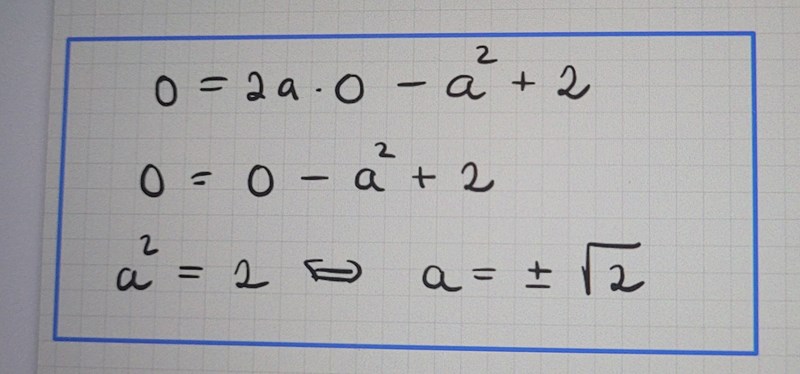 0 = 2a · 0 − a² + 2
0 = 0 − a² + 2
a² = 2 ⇔ a = ± √2